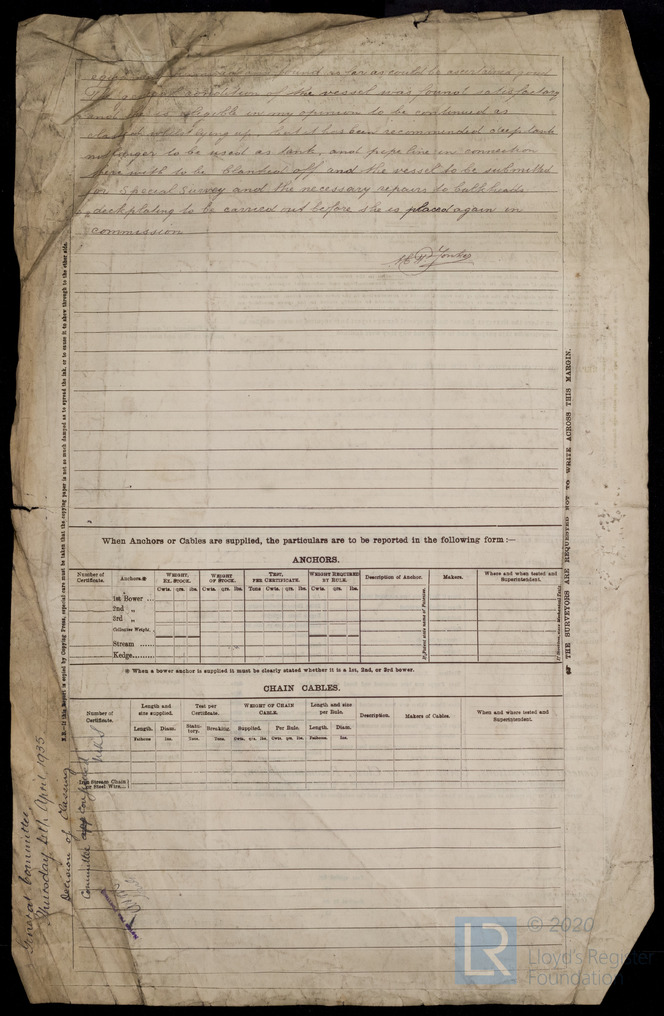 and so far as could be ascertained good
The general condition of the vessel was found satisfactory
and she is eligible in my opinion to be continued as
classed whilst lying up, but it has been recommended deep tank
no longer to be used as tank, and pipe line in connection
there with to be blanked off and the vessel to be submitted
for Special Survey and the necessary repairs to bulkheads
deck plating to be carried out before she is placed again in
commission
When Anchors or Cables are supplied, the particulars are to be reported in the following form :—
ANCHORS.
Number of Certificate.
Anchors.※
WEIGHT, EX. STOCK.
WEIGHT OF STOCK.
TEST, PER CERTIFICATE.
WEIGHT REQUIRED BY RULE.
Description of Anchor.
Makers.
Where and when tested and Superintendent.
Cwts. qrs. lbs.
Cwts. qrs. lbs.
Tons Cwts. qrs. lbs.
Cwts. qrs. lbs.
1st Bower ...
2nd „
3rd „
Collective Weight.
Stream ......
Kedge.........
※ When a bower anchor is supplied it must be clearly stated whether it is a 1st, 2nd, or 3rd bower.
CHAIN CABLES.
Number of Certificate.
Length and size supplied.
Test per Certificate.
WEIGHT OF CHAIN CABLE.
Length and size per Rule.
Description.
Makers of Cables.
When and where tested and Superintendent.
Length.
Diam.
Statutory.
Breaking.
Supplied.
Per Rule.
Length.
Diam.
Fathoms
Ins.
Tons.
Tons.
Cwts. qrs. lbs.
Cwts. qrs. lbs.
Fathoms.
Ins.
Stream Chain
or Steel Wire...
N.B.—If this Report is copied by Copying Press, especial care must be taken that the copying paper is not so much damped as to spread the ink, or to cause it to show through to the other side.
THE SURVEYORS ARE REQUESTED NOT TO WRITE ACROSS THIS MARGIN.
General Committee,
Thursday 4th April 1935
Decision of Classing
Committee confirmed
LR
© 2020
Lloyd's Register
Foundation